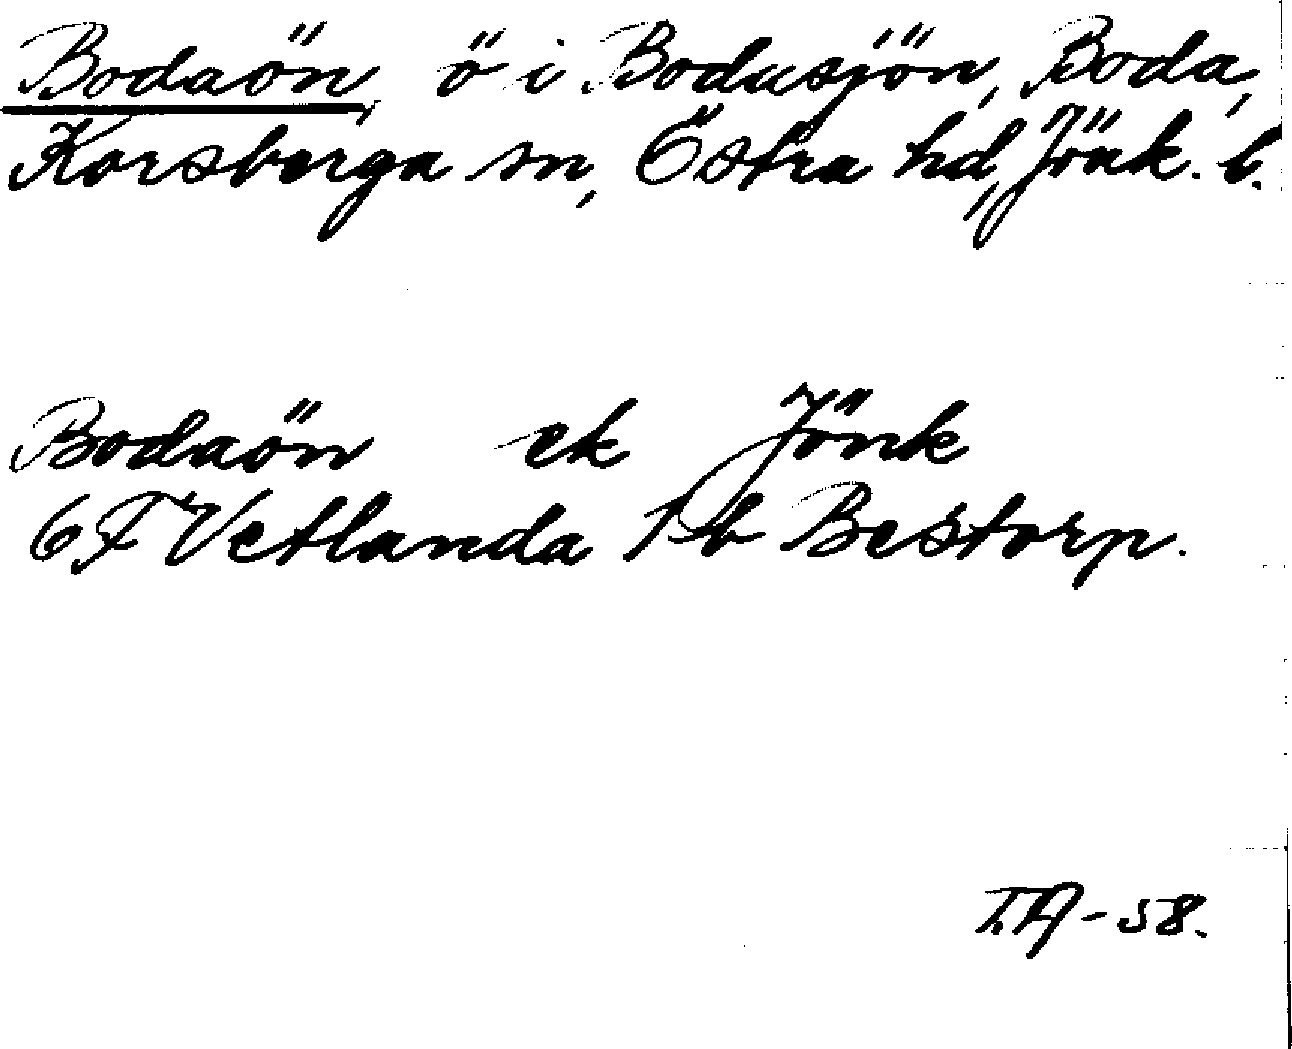 Bodaön, ö i Bodasjön, Boda,
Korsberga sn, Östra hd, Jönk. l.
Bodaön ek Jönk
6F Vetlanda 1 b Bestorp.
-58.